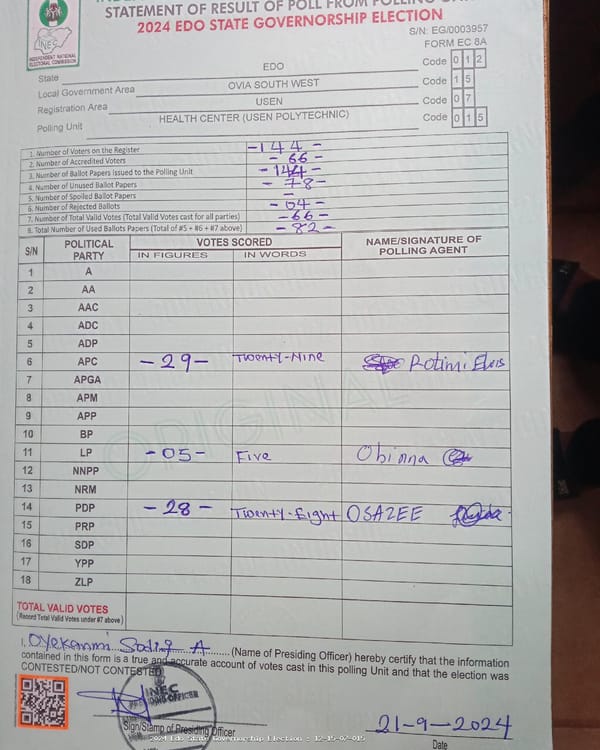 STATEMENT OF RESULT OF POLL FROM POLLING
2024 EDO STATE GOVERNORSHIP ELECTION
S/N: EG/0003957
FORM EC 8A
INEC
INDEPENDENT NATIONAL
ELECTORAL COMMISSION
State EDO Code 0 1 2
Local Government Area OVIA SOUTH WEST Code 1 5
Registration Area USEN Code 0 7
Polling Unit HEALTH CENTER (USEN POLYTECHNIC) Code 0 1 5
1. Number of Voters on the Register -144-
2. Number of Accredited Voters -66-
3. Number of Ballot Papers Issued to the Polling Unit -144-
4. Number of Unused Ballot Papers -78-
5. Number of Spoiled Ballot Papers -
6. Number of Rejected Ballots -04-
7. Number of Total Valid Votes (Total Valid Votes cast for all parties) -66-
8. Total Number of Used Ballots Papers (Total of #5 + #6 + #7 above) -82-
S/N POLITICAL PARTY VOTES SCORED NAME/SIGNATURE OF POLLING AGENT
IN FIGURES IN WORDS
1 A
2 AA
3 AAC
4 ADC
5 ADP
6 APC -29- Twenty-Nine Rotimi Elvis
7 APGA
8 APM
9 APP
10 BP
11 LP -05- Five Obinna
12 NNPP
13 NRM
14 PDP -28- Twenty-Eight OSAZEE
15 PRP
16 SDP
17 YPP
18 ZLP
ORIGINAL
TOTAL VALID VOTES
(Record Total Valid Votes under #7 above)
I, Oyekanmi Sodiq A (Name of Presiding Officer) hereby certify that the information
contained in this form is a true and accurate account of votes cast in this polling Unit and that the election was
CONTESTED/NOT CONTESTED
INEC
PRESIDING OFFICER
Sign/Stamp of Presiding Officer
21-9-2024
Date
2024 Edo State Governorship Election : 12-15-07-015